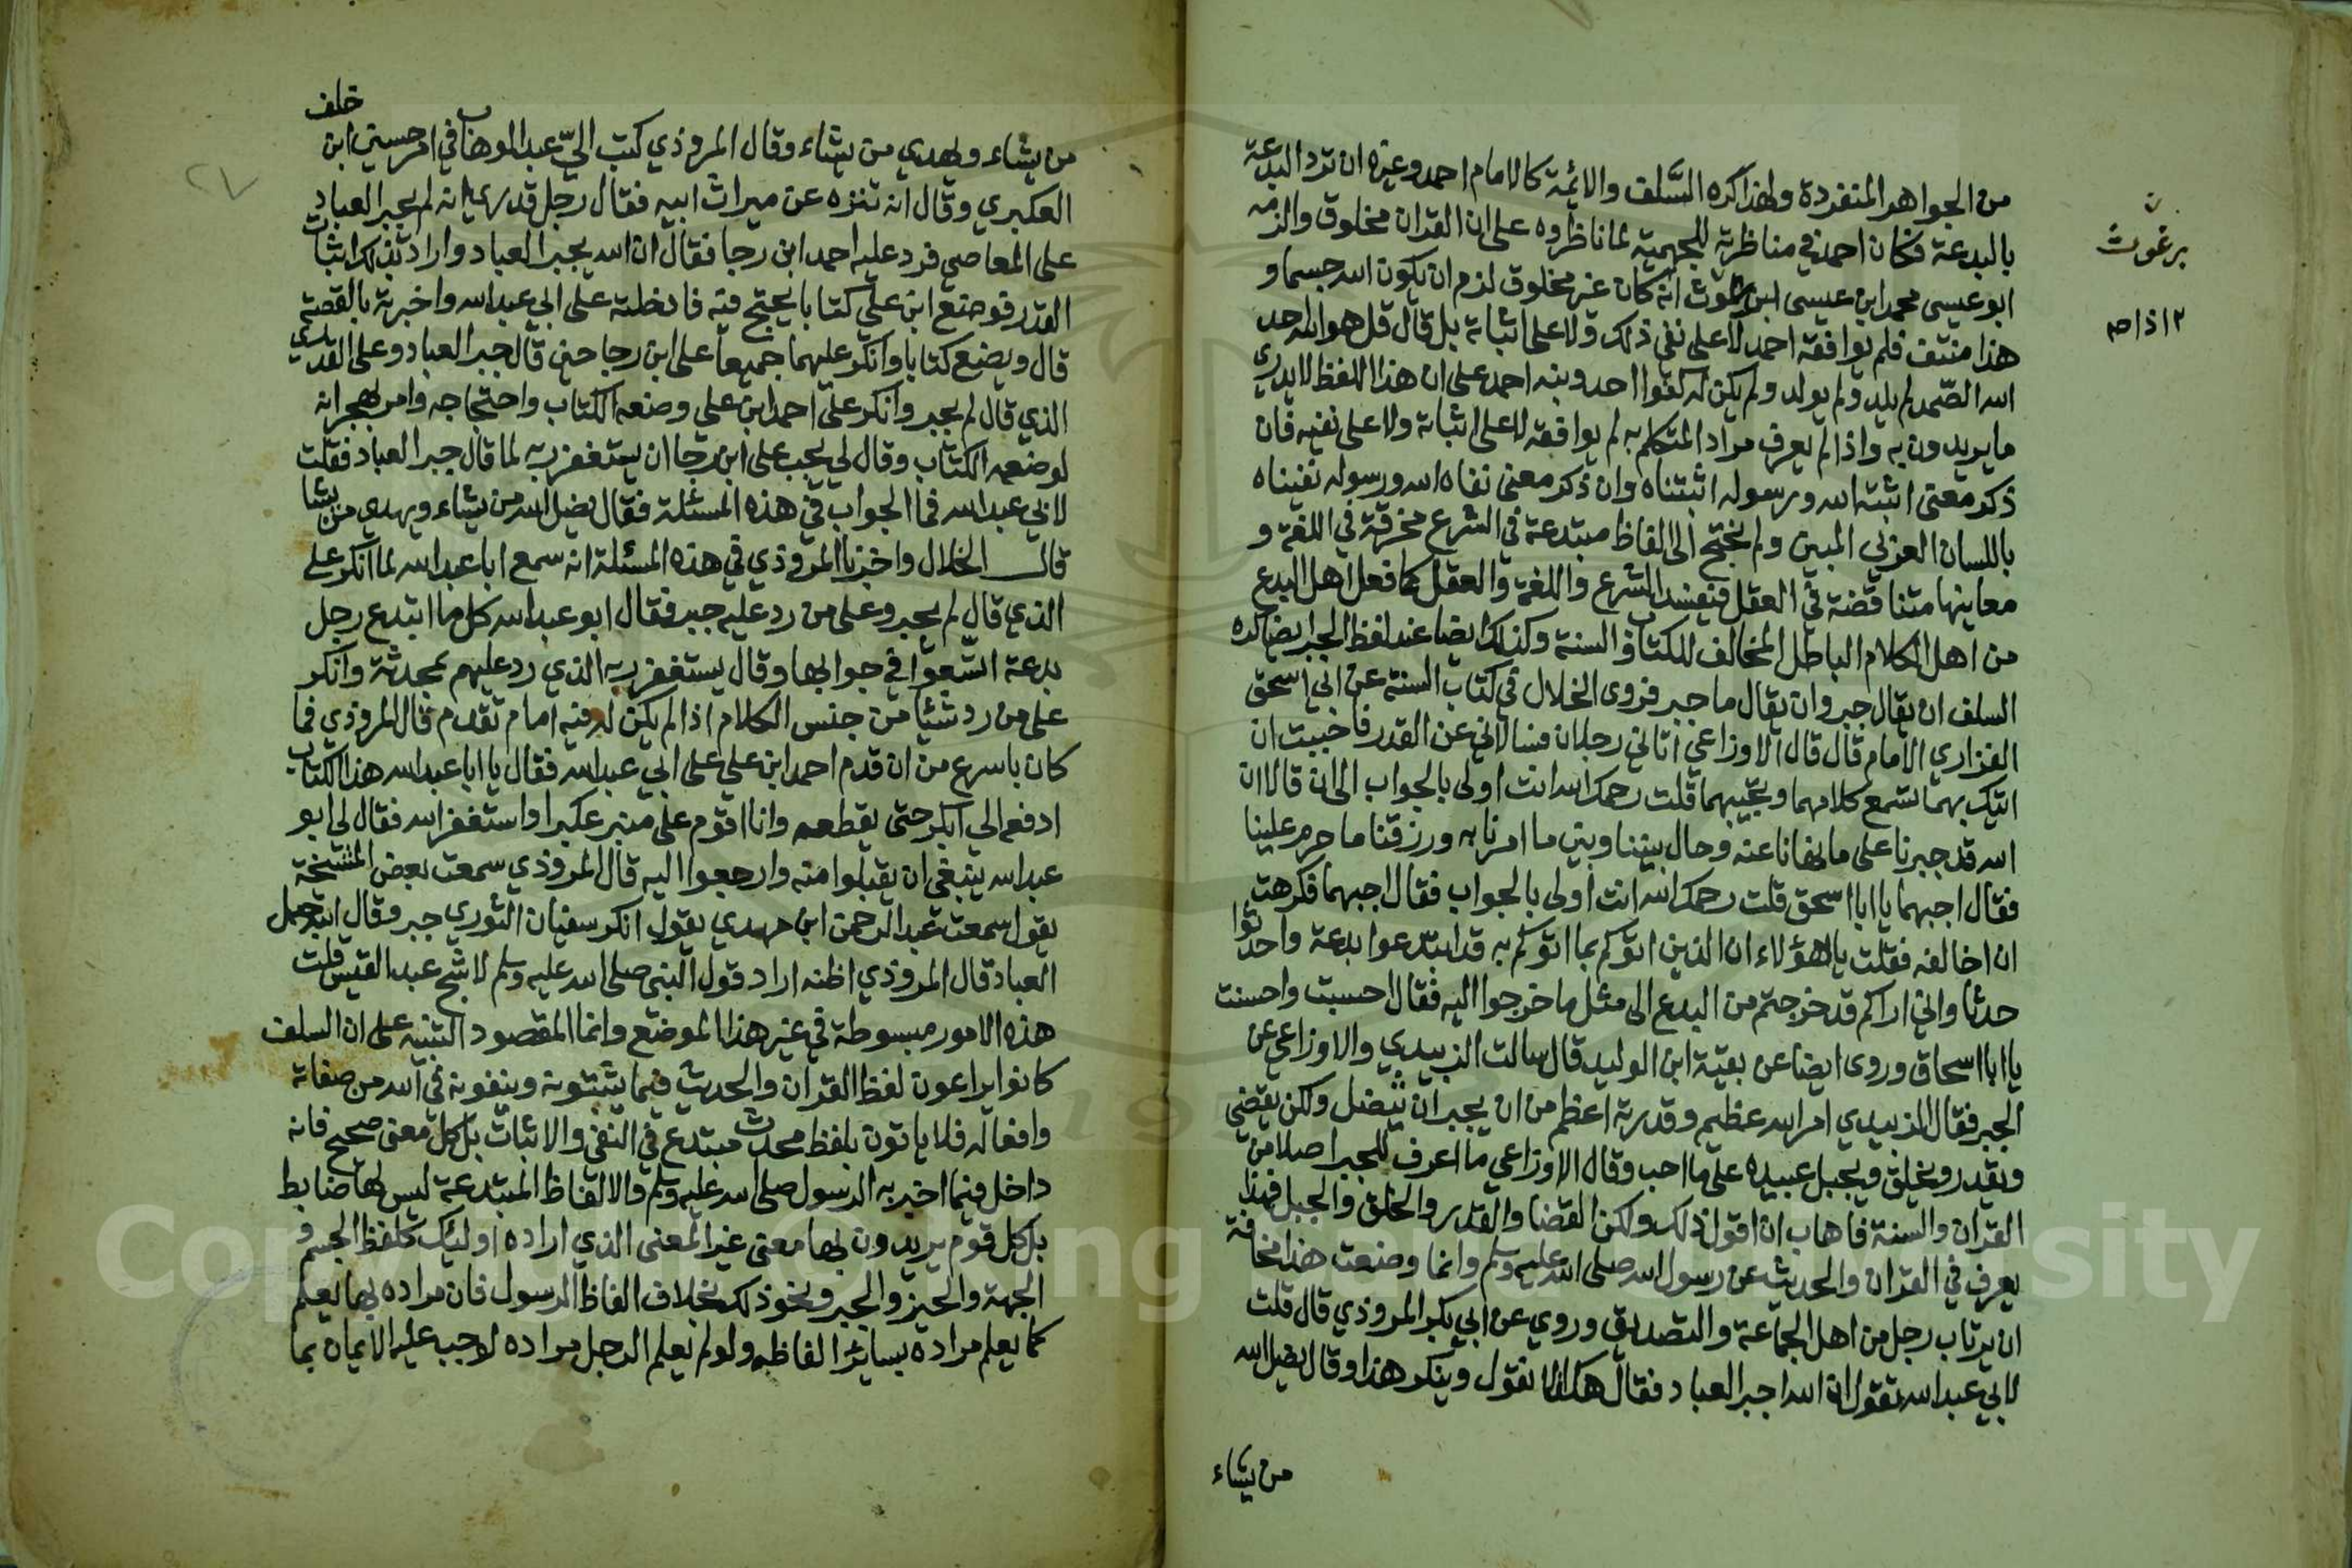 من الجواهر المنفردة ولهذا كره السَّلف والائمة كالامام احمد وغيره ان ترد البدعة
بالبدعة فكان احمد في مناظرته للجهمية لما ناظروه على ان القران مخلوق والزمه
ابو عيسى محمد ابن عيسى ابن برغوث انه كان غير مخلوق لزم ان يكون الله جسما و
هذا منتف فلم يوافقه احمد لا على نفي ذلك ولا على اثباته بل قال قل هو الله احد
الله الصّمد لم يلد ولم يولد ولم يكن له كفوا احد ونبه احمد على ان هذا اللفظ لا يدري
ما يريدون به واذا لم يعرف مراد المتكلم به لم يوافقه لا على اثباته ولا على نفيه فان
ذكر معنى اثبته الله ورسوله اثبتناه وان ذكر معنى نفاه الله ورسوله نفيناه
باللسان العربي المبين ولم نحتج الى الفاظ مبتدعة في الشرع محرفة في اللغة و
معانيها متناقضة في العقل فيفسد الشرع واللغة والعقل كما فعل اهل البدع
من اهل الكلام الباطل المخالف للكتاب والسنة وكذلك ايضا عند لفظ الجبر ايضا كره
السلف ان يقال جبر وان يقال ما جبر فروى الخلال في كتاب السنة عن ابي اسحق
الفزاري الامام قال قال الاوزاعي اتاني رجلان فسالاني عن القدر فاحببت ان
اتيك بهما تسمع كلامهما وتجيبهما قلت رحمك الله انت اولى بالجواب الى ان قالا ان
الله قد جبرنا على ما نهانا عنه وحال بيننا وبين ما امرنا به ورزقنا ما حرم علينا
فقال اجبهما يا ابا اسحق قلت رحمك الله انت اولى بالجواب فقال اجبهما فكرهت
ان اخالفه فقلت يا هؤلاء ان الذين اتوكم بما اتوكم به قد ابتدعوا بدعة واحدثوا
حدثا واني اراكم قد خرجتم من البدع الى مثل ما خرجوا اليه فقال احسبت واحسنت
يا ابا اسحاق وروى ايضا عن بقية ابن الوليد قال سالت الزبيدي والاوزاعي عن
الجبر فقال الزبيدي امر الله عظيم وقدرته اعظم من ان يجبر ان يعضل ولكن يقضي
ويقدر ويخلق ويجبل عبيده على ما احب وقال الاوزاعي ما اعرف للجبر اصلا من
القران والسنة فاهاب ان اقول ذلك ولكن القضا والقدر والخلق والجبل فهذا
يعرف في القران والحديث عن رسول الله صلى الله عليه وسلم وانما وضعت هذا مخافة
ان يرتاب رجل من اهل الجماعة والتصديق وروي عن ابي بكر المروذي قال قلت
لابي عبد الله تقول ان الله اجبر العباد فقال هكذا لا تقول وينكر هذا وقال يضل الله
من يشاء
برغوث
من يشاء ويهدي من يشاء وقال المروذي كتب اليّ عبد الوهاب في امر حسين ابن خلف
العكبري وقال انه تنزه عن ميراث ابيه فقال رجل قدري ان الله لم يجبر العباد
على المعاصي فرد عليه احمد ابن رجا فقال ان الله يجبر العباد واراد بذلك اثبات
القدر فوضع ابن علي كتابا يحتج فيه فادخلته على ابي عبد الله واخبرته بالقصة
قال ويضع كتابا وانكر عليهما جميعا على ابن رجا حين قال جبر العباد وعلى القدري
الذي قال لم يجبر وانكر على احمد ابن علي وضعه الكتاب واحتجاجه وامر بهجرانه
لوضعه الكتاب وقال لي يجب على ابن رجا ان يستغفر ربه لما قال جبر العباد فقلت
لابي عبد الله فما الجواب في هذه المسئلة فقال يضل الله من يشاء ويهدي من يشا
قال الخلال واخبرنا المروذي في هذه المسئلة انه سمع ابا عبد الله لما انكر على
الذي قال لم يجبر وعلى من رد عليه جبر فقال ابو عبد الله كل ما ابتدع رجل
بدعة اتسعوا في جوابها وقال يستغفر ربه الذي رد عليهم بمحدثة وانكر
على من رد شيئا من جنس الكلام اذا لم يكن له فيه امام تقدم قال المروذي فما
كان باسرع من ان قدم احمد ابن علي على ابي عبد الله فقال يا ابا عبد الله هذا الكتاب
ادفعه الى ابي بكر حتى يقطعه وانا اقوم على منبر عكبرا واستغفر الله فقال لي ابو
عبد الله ينبغي ان يقبلوا منه وارجعوا اليه قال المروذي سمعت بعض المشيخة
يقول سمعت عبد الرحمن ابن مهدي يقول انكر سفيان الثوري جبر وقال الله جبل
العباد قال المروذي اظنه اراد قول النبي صلى الله عليه وسلم لاشج عبد القيس قلت
هذه الامور مبسوطة في غير هذا الموضع وانما المقصود التنبيه على ان السلف
كانوا يراعون لفظ القران والحديث فيما يثبتونه وينفونه في الله من صفاته
وافعاله فلا ياتون بلفظ محدث مبتدع في النفي والاثبات بل كل معنى صحيح فانه
داخل فيما اخبر به الرسول صلى الله عليه وسلم والالفاظ المبتدعة ليس لها ضابط
بل كل قوم يريدون بها معنى غير المعنى الذي اراده اوليك كلفظ الجسم و
الجهة والحيز والجبر ونحو ذلك بخلاف الفاظ الرسول فان مراده بها يعلم
كما يعلم مراده بسائر الفاظه ولو لم يعلم الرجل مراده لوجب عليه الايمان بما
٢٧